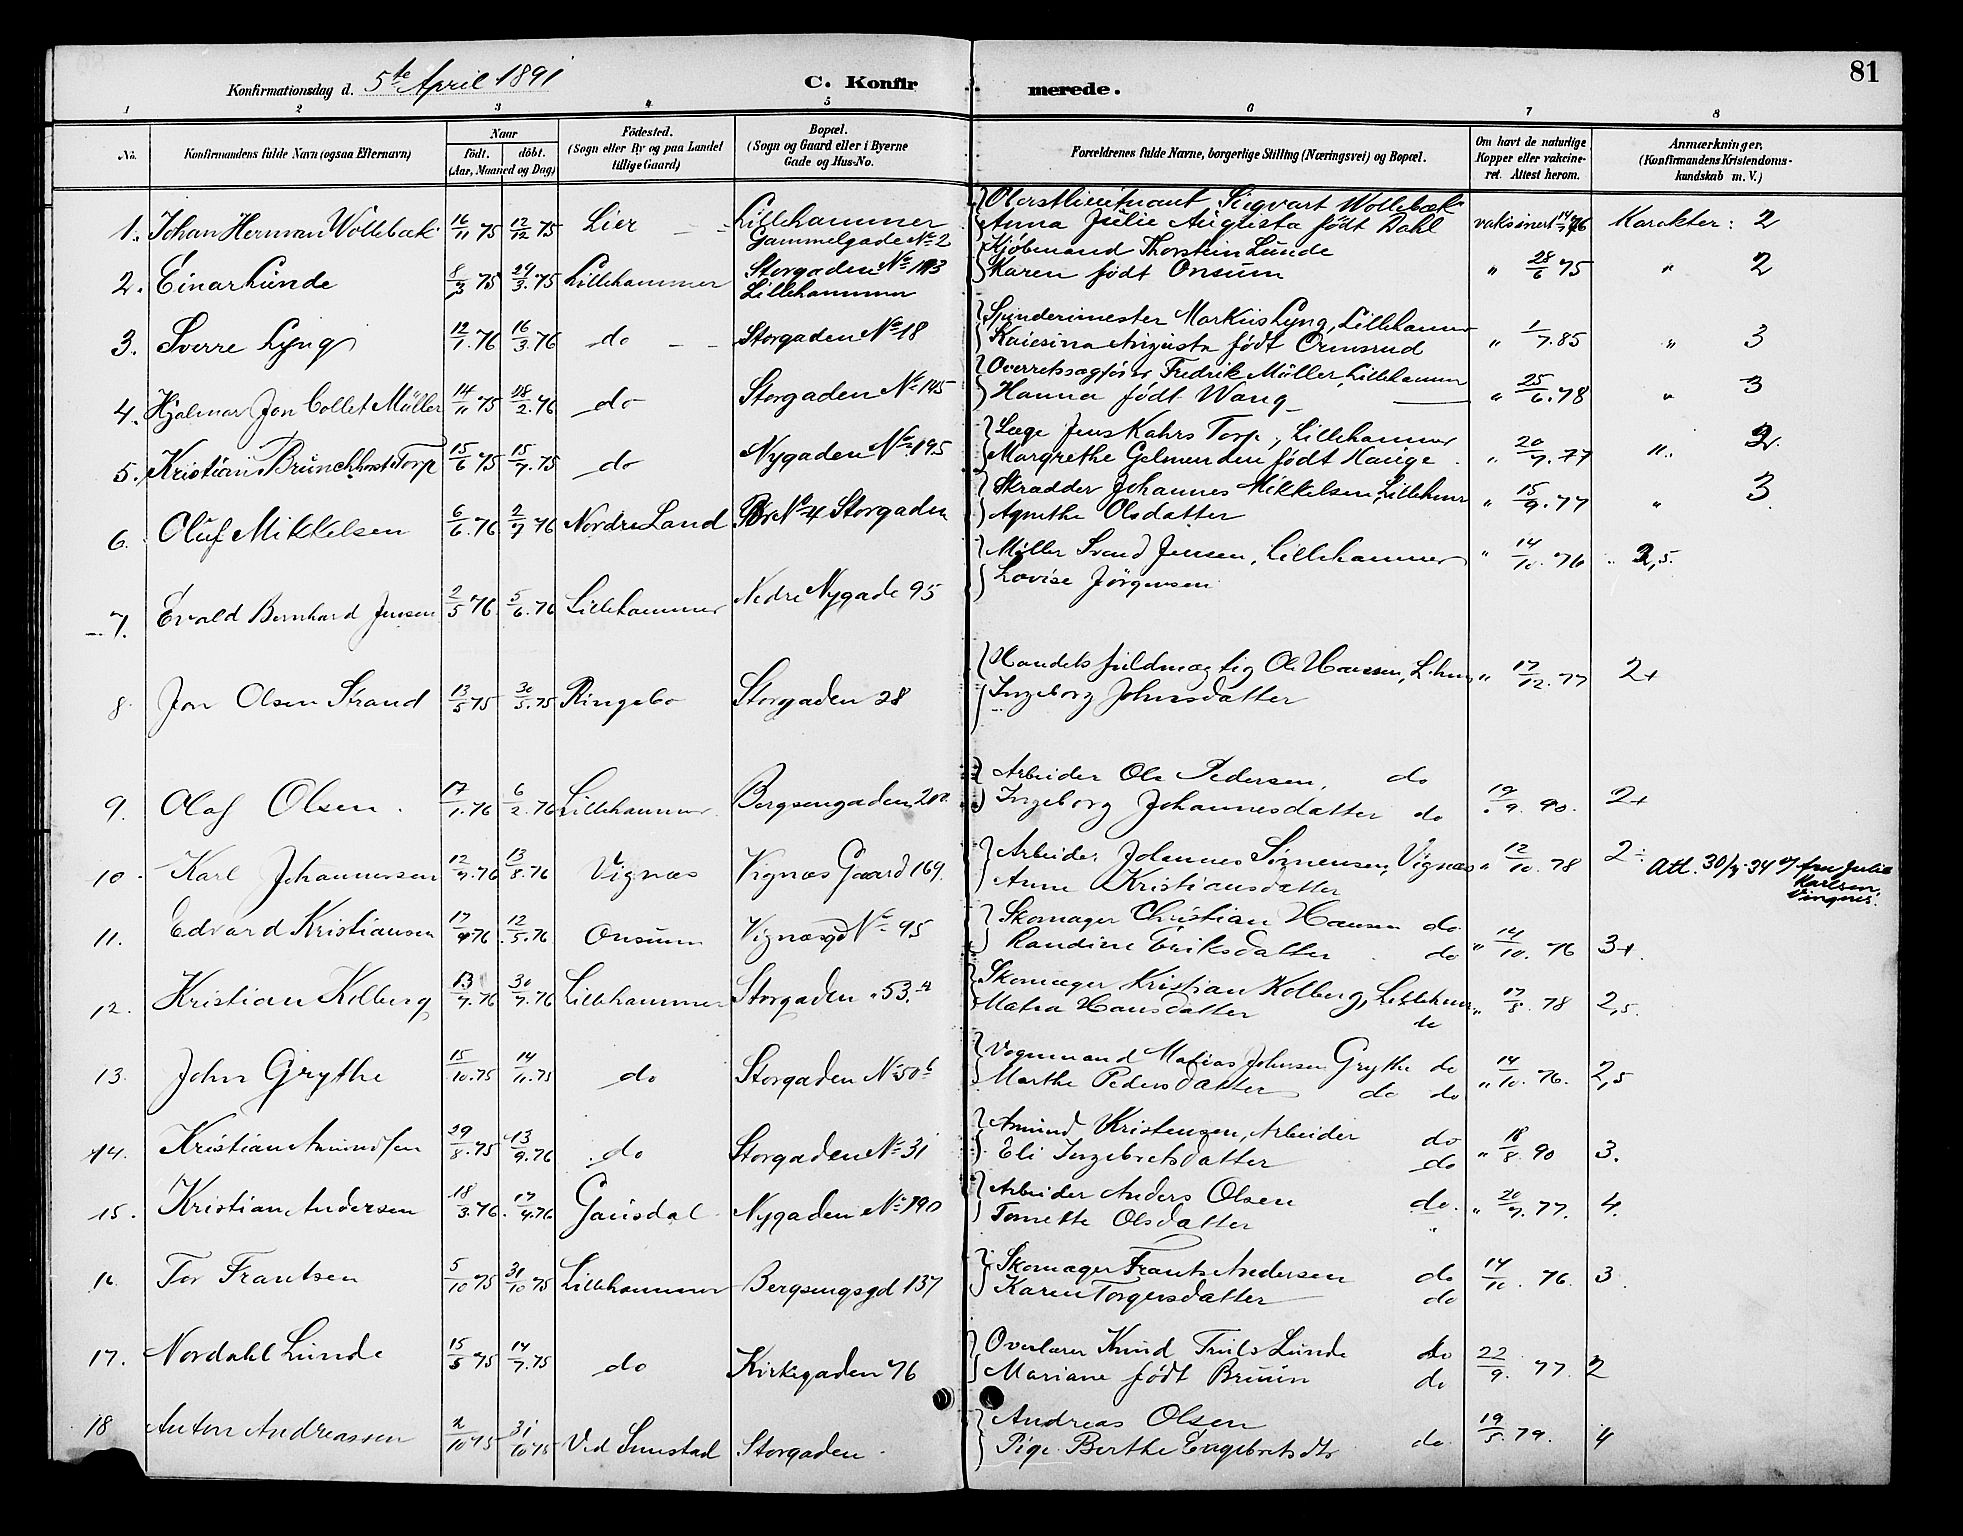 81
Konfirmationsdag d. 5te April 1891
C. Konfirmerede.
1 2 3 4 5 6 7 8
No.
Konfirmandens fulde Navn (ogsaa Efternavn)
Naar
födt. döbt.
(Aar, Maaned og Dag)
Födested.
(Sogn eller By og paa Landet
tillige Gaard)
Bopæl.
(Sogn og Gaard eller i Byerne
Gade og Hus-No.
Forældrenes fulde Navne, borgerlige Stilling (Næringsvei) og Bopæl.
Om havt de naturlige
Kopper eller vakcine-
ret. Attest herom.
Anmærkninger.
(Konfirmandens Kristendoms-
kundskab m. V.)
1. Johan Herman Wollebæk 16/11 75 12/12 75 Lier Lillehammer
Gammelgade No 2
Oberstlieutnant Sigvart Wollebæk
Anna Julie Augusta født Dahl vaksinert Karakter: 2
2. Einar Lunde 8/3 75 29/3 75 Lillehammer Storgaden No 193
Lillehammer
Kjöbmand Thorstein Lunde
Karen født Onsum " 28/6 75 " 2
3. Sverre Lyng 12/1 76 16/3 76 do Storgaden No 18
Spinderimester Markus Lyng, Lillehammer
Augusta født Ormsrud " 1/7 85 " 3
4. Hjalmar Jon Collet Müller 14/11 75 28/2 76 do Storgaden No 145
Overretssagfører Fredrik Müller, Lillehammer
Hanna født Wang " 25/6 78 " 3
5. Kristian Brunchhorst Torp 15/6 75 15/7 75 do Nygaden No 195
Læge Jens Kahrs Torp, Lillehammer
Margrethe Gelmenden født Hauge " 20/9 77 " 2
6. Oluf Mikkelsen 6/6 76 2/7 76 Nordre Land No 4 Storgaden
Skrædder Johannes Mikkelsen, Lillehmr
Agnethe Olsdatter " 15/9 77 " 3
7. Evald Bernhard Jensen 2/5 76 5/6 76 Lillehammer Nedre Nygade 95
Møller Svend Jensen, Lillehammer " 14/10 76 " 2,5
Lovise Jörgensen
8. Jon Olsen Strand 13/5 75 30/5 75 Ringebo Storgaden 28
Handelsfuldmægtig Ole Hansen, L.hmr " 17/12 77 2+
Ingeborg Johnsdatter
9. Olaf Olsen 17/1 76 6/2 76 Lillehammer Bergsengaden 200
Arbeider Ole Pedersen, do
Ingeborg Johannesdatter do 19/9 90 2+
10. Karl Johannessen 12/7 76 13/8 76 Vignæs Vignæs Gaard 169
Arbeider Johannes Simensen, Vignæs " 12/10 78 2÷ Att. 30/7-34 af fru Julie
Karlsen,
Vingnes.
Anne Kristiansdatter
11. Edvard Kristiansen 17/4 76 12/5 76 Onsum Vignæsgd No 95
Skomager Christian Hansen do
Randine Eriksdatter do " 14/10 76 3+
12. Kristian Kolberg 13/7 76 30/7 76 Lillehammer Storgaden 53 a
Skomager Kristian Kolberg, Lillehmr " 17/8 78 2,5
Matea Hansdatter do
13. John Grythe 15/10 75 14/11 75 do Storgaden No 50 b
Vognmand Matias Johnsen Grythe do
Marthe Pedersdatter do do " 14/10 76 2,5
14. Kristian Amundsen 29/8 75 13/9 76 do Storgaden No 31
Amund Kristensen, Arbeider do
Eli Ingebretsdatter do " 18/8 90 3.
15. Kristian Andersen 18/3 76 17/4 76 Gausdal Nygaden No 190
Arbeider Anders Olsen do " 20/9 77 4.
Tomette Olsdatter "
16. Tor Frantsen 5/10 75 31/10 75 Lillehammer Bergsengsgd 137
Skomager Frants Andersen do 14/10 76 3
Karen Torgersdatter do
17. Nordahl Lunde 15/5 75 14/7 75 do Kirkegaden 76
Overlærer Knud Truls Lunde do
Mariane født Bruun do 22/9 77 2
18 Anton Andreassen 2/10 75 31/10 75 Ved Sunstad Storgaden
Andreas Olsen
Pige Berthe Engebretsdtr do 19/5 79 4